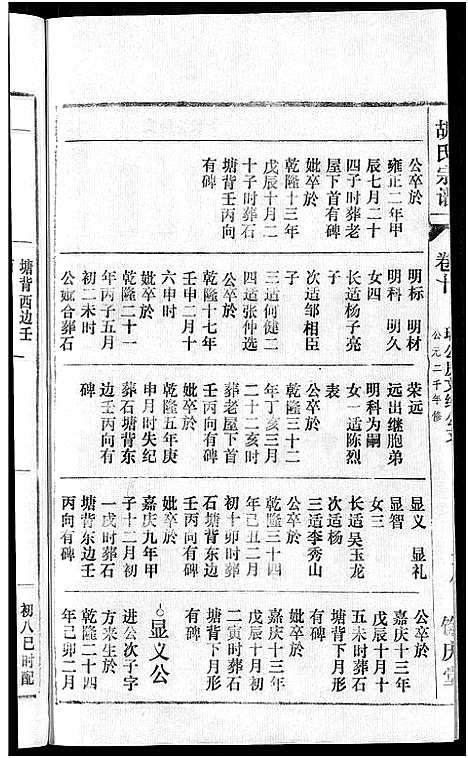 胡氏宗谱
卷十
公元二千年修
馀庆堂
公卒於
雍正二年甲
辰七月二十
四子时葬老
屋下首有碑
妣卒於
乾隆十三年
戊辰十月二
十子时葬石
塘背壬丙向
有碑
明标 明材
明科 明久
女四
长适杨子亮
次适邹相臣
子
三适何健二
四适张仲选
公卒於
乾隆十七年
壬申二月十
六申时
妣卒於
乾隆二十一
年丙子五月
初二未时
公妣合葬石
塘背西边壬
荣远
远出继胞弟
明科为嗣
女一适陈烈
表
公卒於
乾隆三十二
年丁亥三月
二十二亥时
葬老屋下首
壬丙向有碑
妣卒於
乾隆五年庚
申月时失纪
葬石塘背东
边壬丙向有
碑
显义 显礼
显智
女三
长适吴玉龙
次适杨
三适李秀山
公卒於
乾隆三十四
年己丑二月
初十卯时葬
石塘背东边
壬丙向有碑
妣卒於
嘉庆九年甲
子十二月初
一戌时葬石
塘背东边壬
丙向有碑
公卒於
嘉庆十三年
戊辰十月十
五未时葬石
塘背下月形
有碑
妣卒於
嘉庆十三年
戊辰十月初
二寅时葬石
塘背下月形
有碑
显义公
进公次子字
一方来生於
乾隆二十四
年己卯二月
初八巳时配